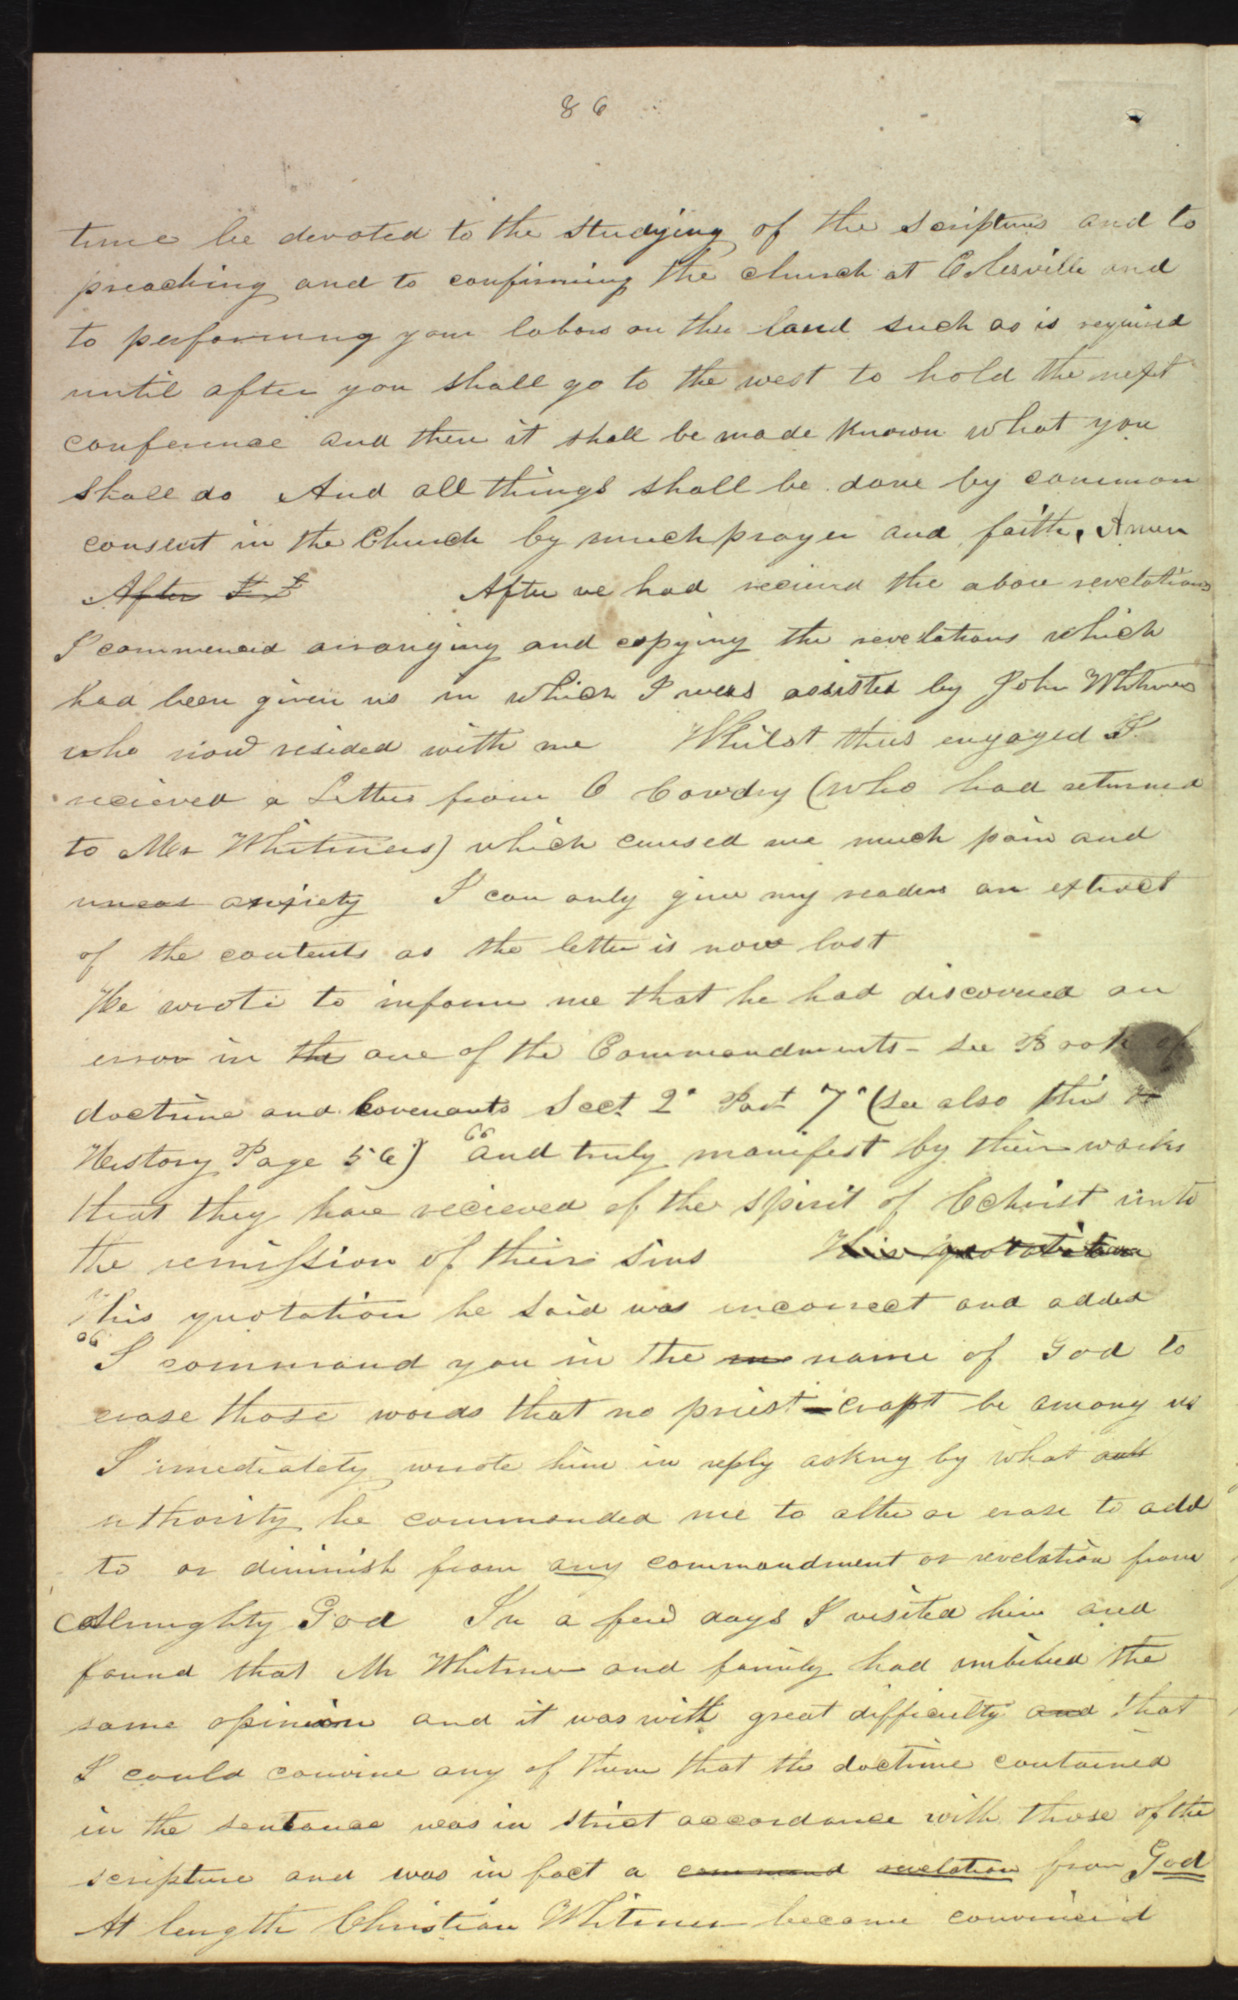 86
time be devoted to the studying of the scriptures and to
preaching and to confirming the church at Colesville and
to performing your labors on the land such as is required
until after you shall go to the west to hold the next
conference and then it shall be made known what you
shall do And all things shall be done by common
consent in the Church by much prayer and faith. Amen
After After we had recieved the above revelations
I commenced arranging and copying the revelations which
had been given us in which I was assisted by John Whitmer
who now resided with me Whilst thus engaged I
recieved a Letter from O Cowdry (who had returned
to Mr Whitmers) which caused me much pain and
uneas anxiety I can only give my readers an extract
of the contents as the letter is now lost
He wrote to inform me that he had discovered an
error in the one of the Commandments - see Book of
doctrine and Covenants Sect 2d Part 7th (see also this
History Page 56) "and truly manifest by their works
that they have recieved of the spirit of Christ unto
the remission of their sins This quotation
This quotation he said was incorrect and added
"I command you in the name of God to
erase those words that no priest-craft be among us
I imediately wrote him in reply asking by what aut
uthority he commanded me to alter or erase to add
to or diminish from any commandment or revelation from
Almighty God In a few days I visited him and
found that Mr Whitmer and family had imbibed the
same opinion and it was with great difficulty and that
I could convine any of them that the doctrine contained
in the sentance was in strict accordance with those of the
scripture and was in fact a command revelation from God
At length Christian Whitmer became convinced